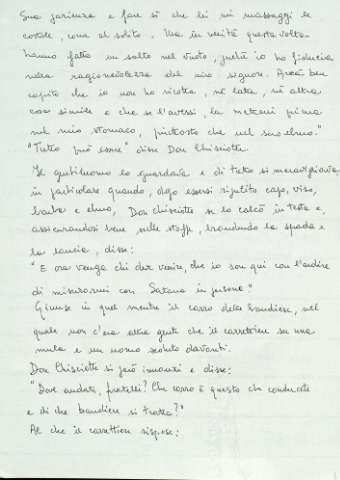 Sua pazienza e fare sì che lei mi massaggi le
costole, come al solito. Ma in verità questa volta
hanno fatto un salto nel vuoto, perché io ho fiducia
nella ragionevolezza del mio signore. Avrà ben
capito che io non ho ricotta, né latte, né altra
cosa simile e che se l'avessi, la metterei prima
nel mio stomaco, piuttosto che nel suo elmo."
"Tutto può essere" disse Don Chisciotte.
Il gentiluomo lo guardava e di tutto si meravigliava,
in particolare quando, dopo essersi ripulito capo, viso,
barba e elmo, Don Chisciotte se lo calcò in testa e,
assicurandosi bene sulle staffe, brandendo la spada e
la lancia, disse:
"E ora venga chi deve venire, che io son qui con l'ardire
di misurarmi con Satana in persona."
Giunse in quel mentre il carro delle bandiere, nel
quale non c'era altra gente che il carrettiere su una
mula e un uomo seduto davanti.
Don Chisciotte si parò innanzi e disse:
"Dove andate, fratelli? Che carro è questo che conducete
e di che bandiere si tratta?"
Al che il carrettiere rispose: